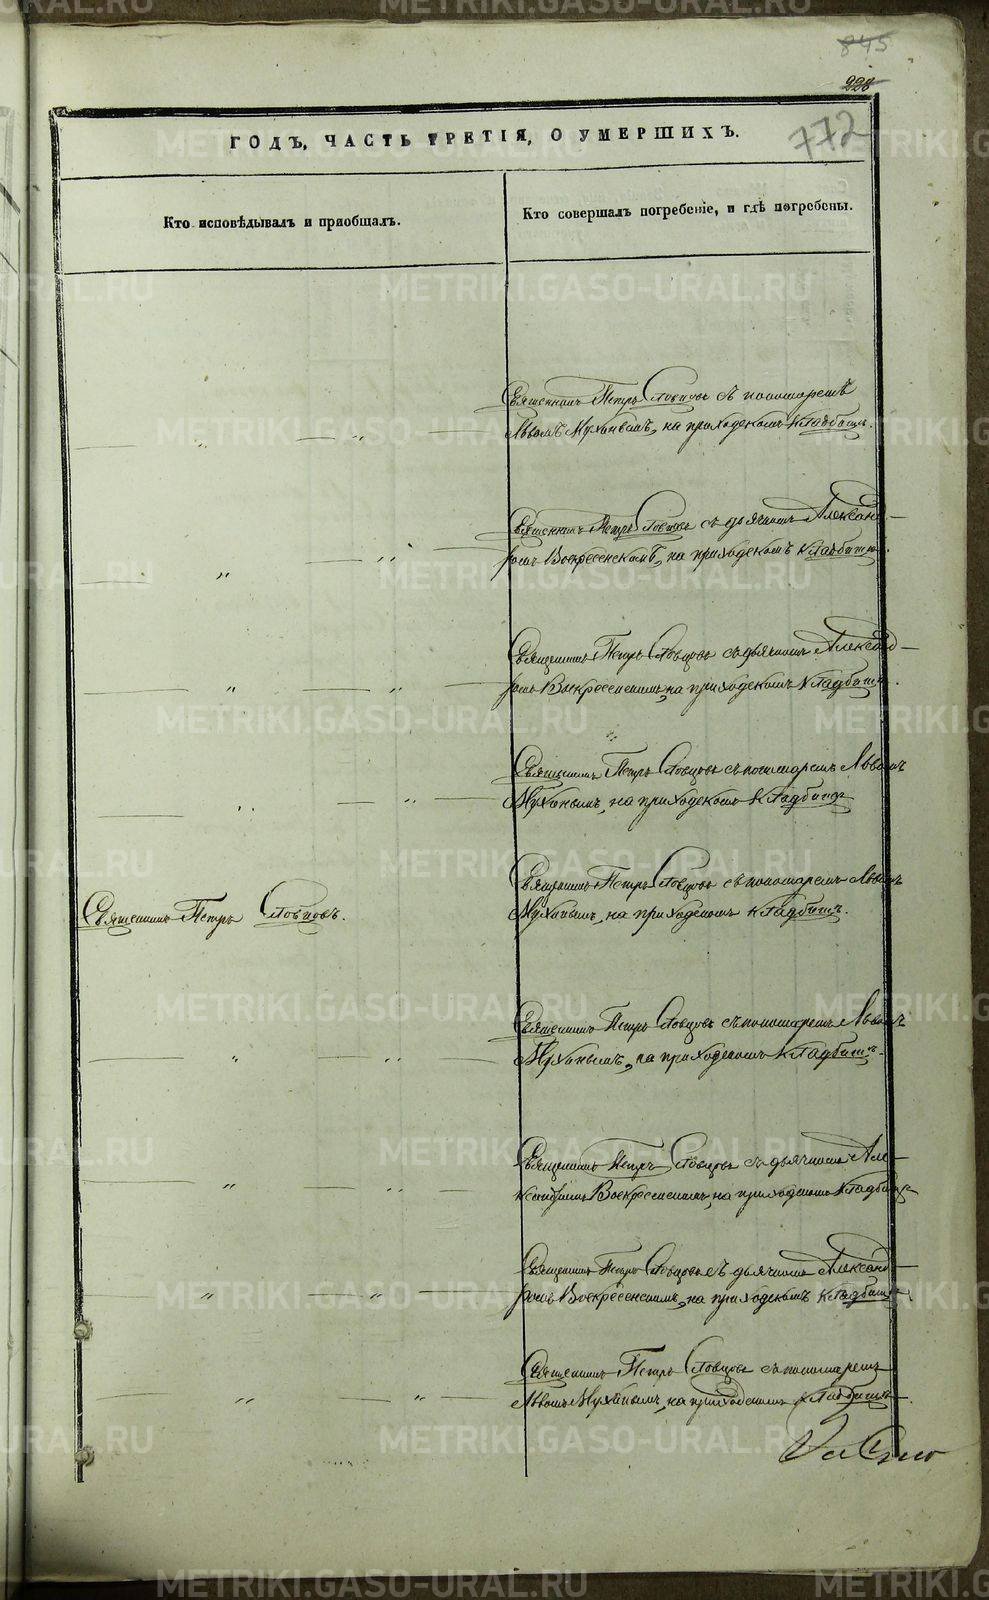 845
228
772
ГОДЪ, ЧАСТЬ ТРЕТІЯ, О УМЕРШИХЪ.
Кто исповѣдывалъ и пріобщалъ.
Кто совершалъ погребеніе, и гдѣ погребены.
Священникъ Петръ Словцовъ съ пономаремъ
Львомъ Мухинымъ, на приходскомъ кладбищѣ.
Священникъ Петръ Словцовъ съ дьячкомъ Александ-
ромъ Воскресенскимъ, на приходскомъ кладбищѣ.
Священникъ Петръ Словцовъ съ дьячкомъ Александ-
ромъ Воскресенскимъ, на приходскомъ кладбищѣ.
Священникъ Петръ Словцовъ съ пономаремъ Львомъ
Мухинымъ, на приходскомъ кладбищѣ
Священникъ Петръ Словцовъ.
Священникъ Петръ Словцовъ съ пономаремъ Львомъ
Мухинымъ, на приходскомъ кладбищѣ.
Священникъ Петръ Словцовъ съ пономаремъ Львомъ
Мухинымъ, на приходскомъ кладбищѣ.
Священникъ Петръ Словцовъ съ дьячкомъ Але-
ксандромъ Воскресенскимъ, на приходскомъ кладбищѣ
Священникъ Петръ Словцовъ съ дьячкомъ Александ-
ромъ Воскресенскимъ, на приходскомъ кладбищѣ
Священникъ Петръ Словцовъ съ пономаремъ
Львомъ Мухинымъ, на приходскомъ кладбищѣ.
METRIKI.GASO-URAL.RU